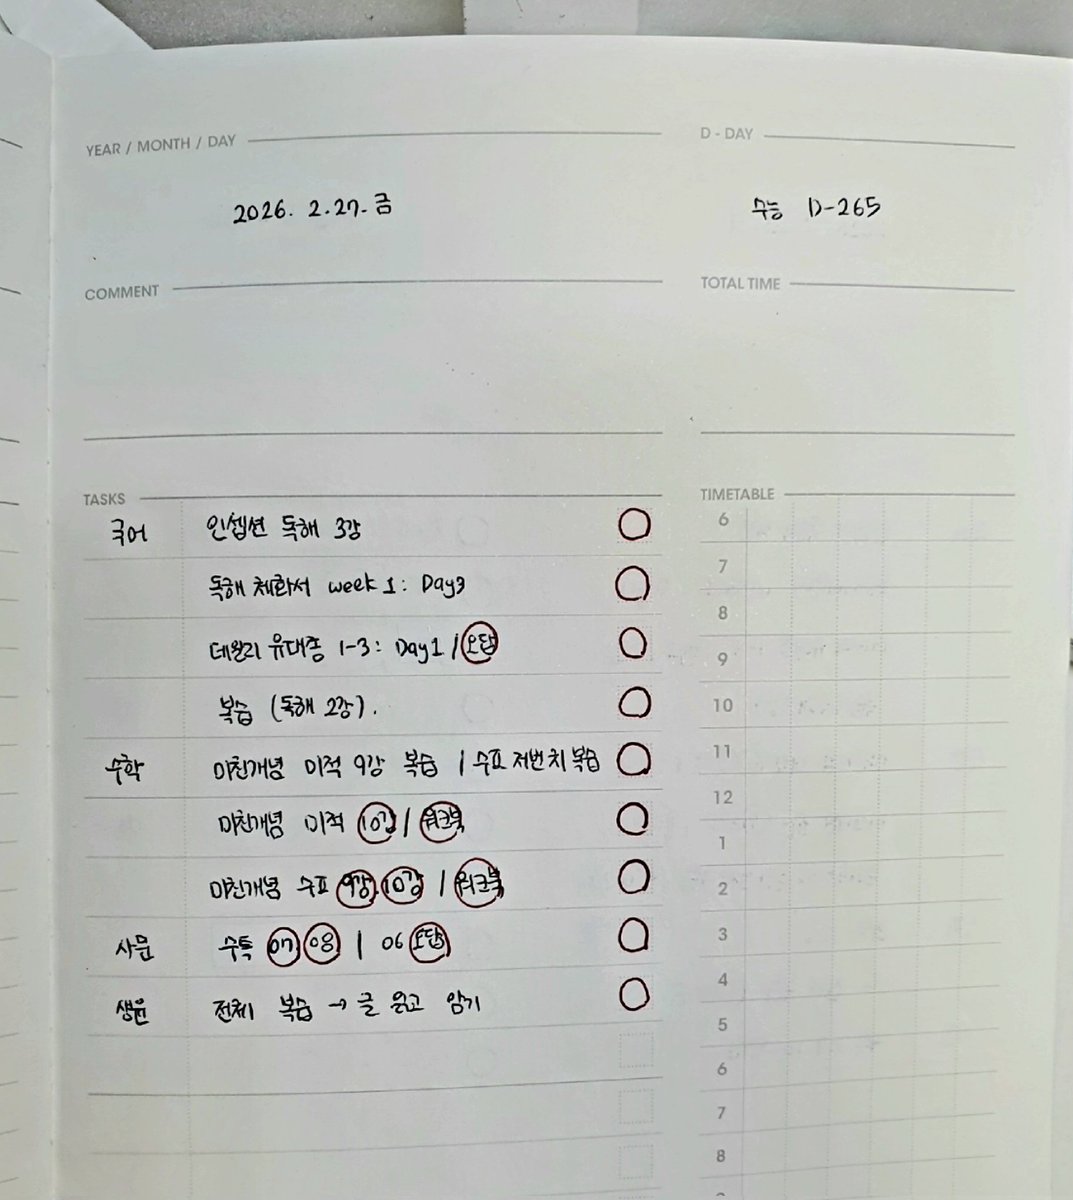 YEAR / MONTH / DAY
2026. 2.27.금
D - DAY
수능 D-265
COMMENT
TOTAL TIME
TASKS
국어 인셉션 독해 3강
독해 체화서 week 1: Day3
데일리 유대종 1-3: Day1 / 오답
복습 (독해 2강).
수학 미친개념 미적 9강 복습 / 수표 저번치 복습
미친개념 미적 10강 / 워크북
미친개념 수표 9강 10강 / 워크북
사문 수특 07 08 / 06 오답
생윤 전체 복습 → 글 읽고 암기
TIMETABLE
6
7
8
9
10
11
12
1
2
3
4
5
6
7
8